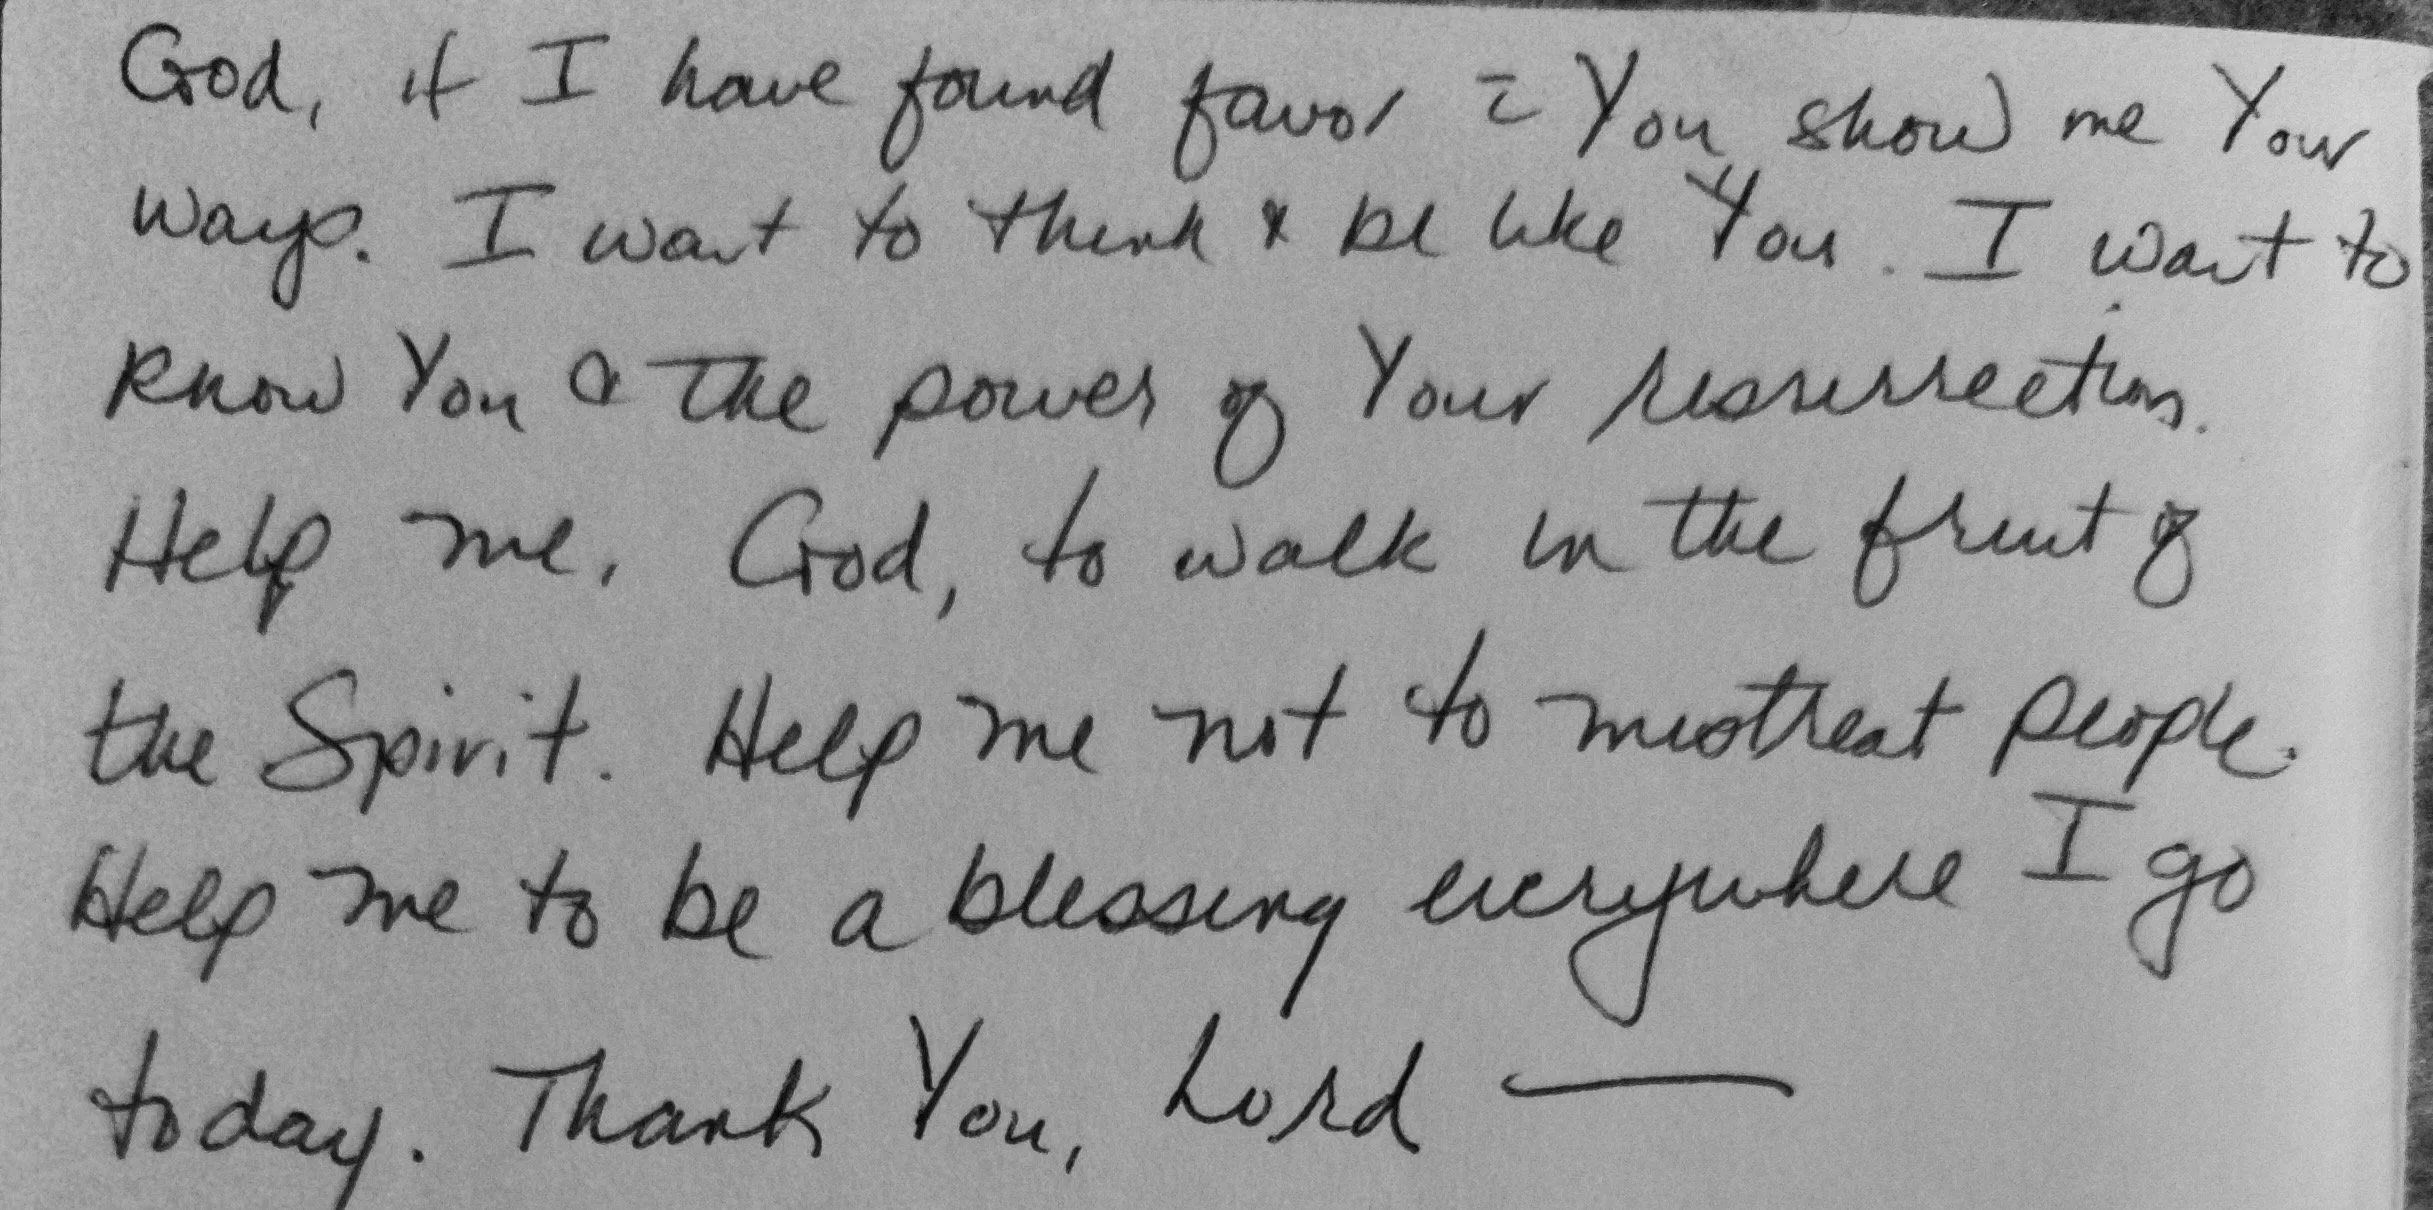 God, if I have found favor c̄ You show me Your
ways. I want to think & be like You. I want to
know You & the power of Your resurrection.
Help me, God, to walk in the fruit of
the Spirit. Help me not to mistreat people.
Help me to be a blessing everywhere I go
today. Thank You, Lord —